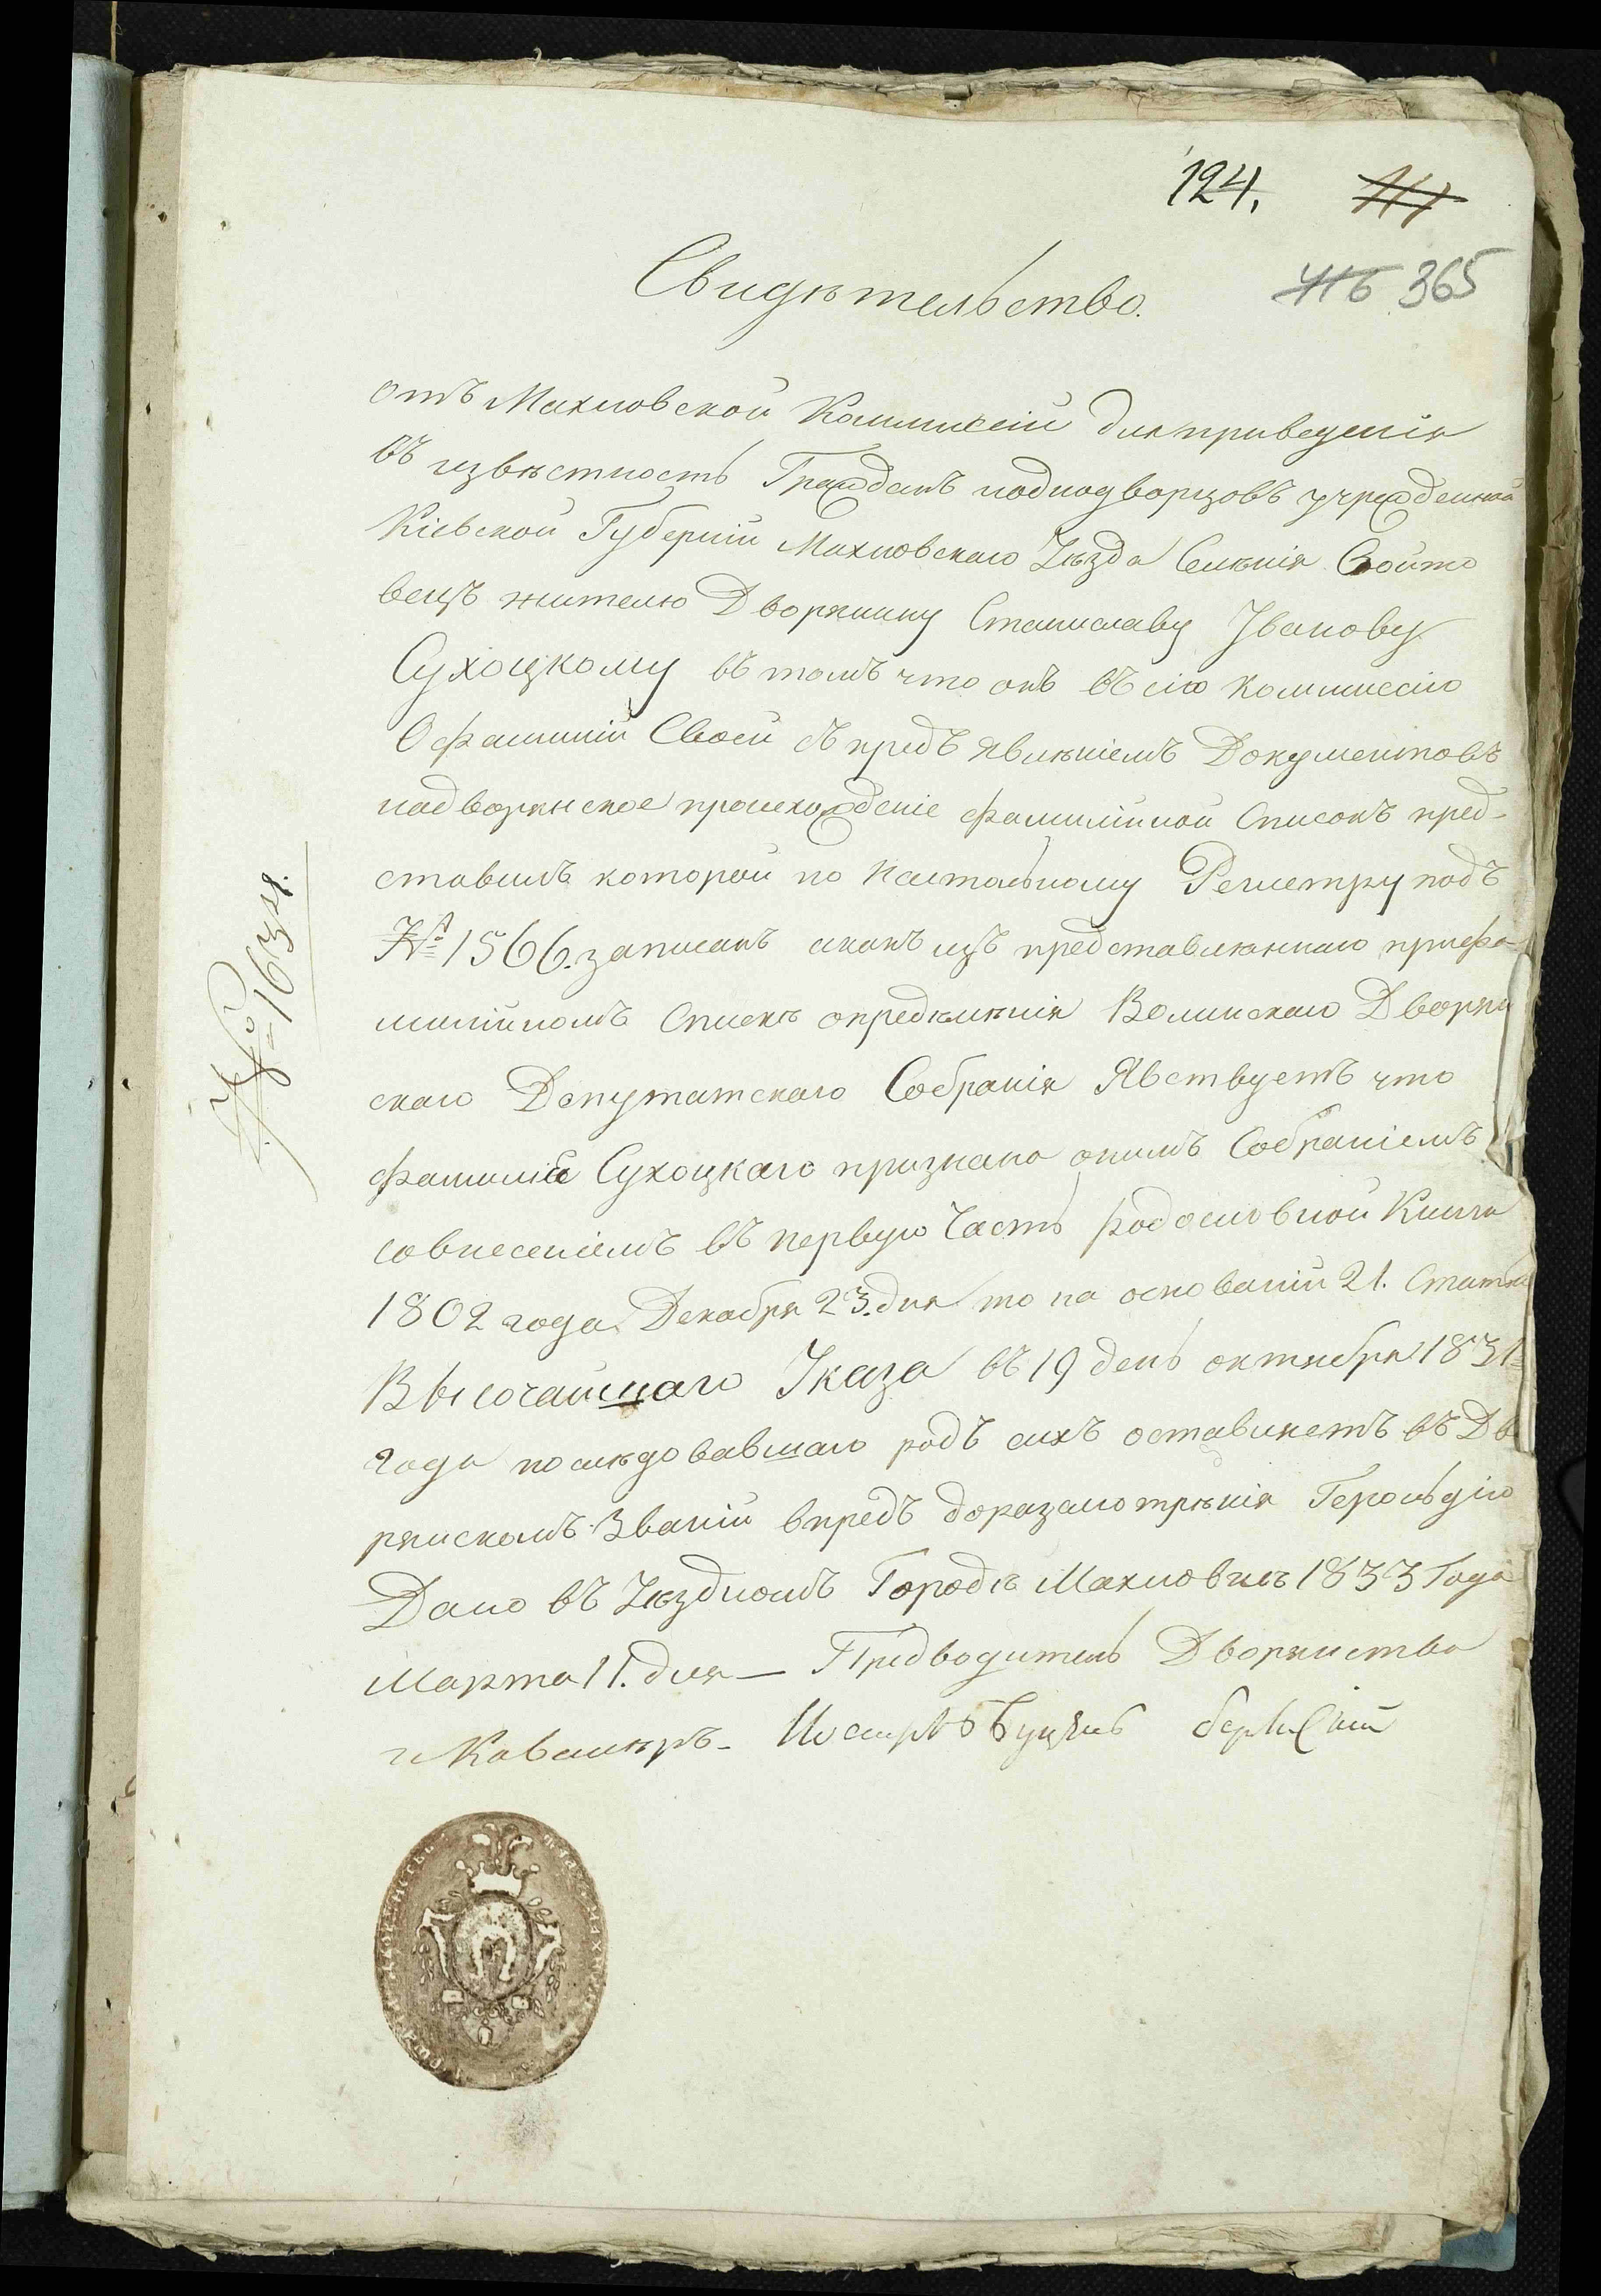 124.
365
Свидѣтельство.
отъ Махновской Коммисіи для приведенія
въ извѣстность Гражданъ иоднодворцовъ учрежденной
Кіевской Губерніи Махновскаго Уѣзда Селѣнія Войто
вецъ жителю Дворянину Станиславу Иванову
Сухоцкому въ томъ что онъ въ сію Коммиссію
О фамиліи Своей съ предъ явлѣніемъ Документовъ
надворянское происхожденіе фамилійной Списокъ пред-
ставилъ которой по настольному Регистру подъ
№ 1566. записанъ акакъ изъ представленнаго прифа-
милійномъ Спискѣ опредѣлѣнія Волынскаго Дворян
скаго Депутатскаго Собранія Явствуетъ что
фамилія Сухоцкаго признана онымъ Собраніемъ
совнесеніемъ въ первую Часть родословной Книги
1802 года Декабря 23. дня то на основаніи 21. Статьи
Высочайшаго Указа въ 19 день октября 1831=
года послѣдовавшаго родъ ихъ оставляетъ въ Дво
рянскомъ Званіи впредь доразсмотрѣнія Герольдіи
Дано въ Уѣздномъ Городѣ Махновкѣ 1833 Года
Марта 11. дня — Предводитель Дворянства
и Кавалѣръ -
№ 1634.